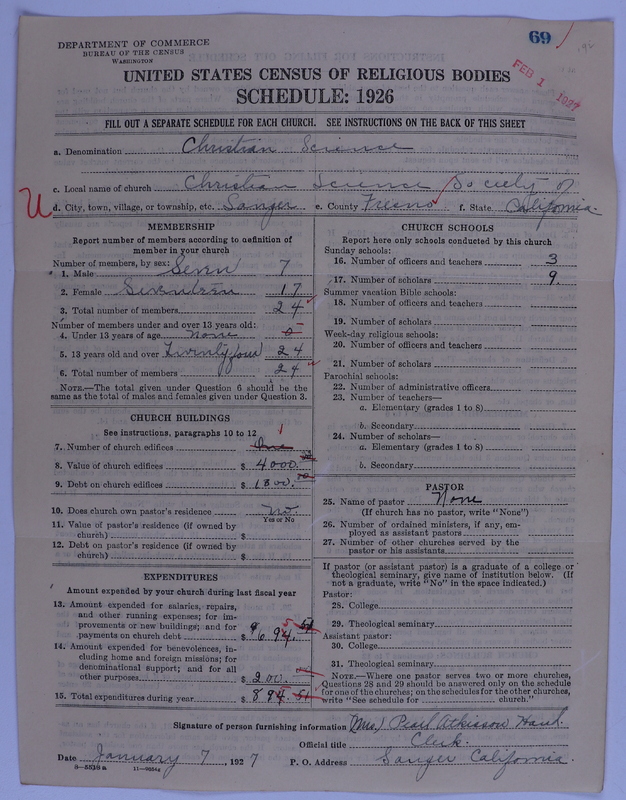 69
DEPARTMENT OF COMMERCE
BUREAU OF THE CENSUS
WASHINGTON
FEB 1 1927
UNITED STATES CENSUS OF RELIGIOUS BODIES
SCHEDULE: 1926
FILL OUT A SEPARATE SCHEDULE FOR EACH CHURCH. SEE INSTRUCTIONS ON THE BACK OF THIS SHEET
a. Denomination Christian Science
c. Local name of church Christian Science Society of
U d. City, town, village, or township, etc. Sanger e. County Fresno f. State California.
MEMBERSHIP
Report number of members according to definition of
member in your church
Number of members, by sex:
1. Male Seven 7
2. Female Seventeen 17
3. Total number of members 24
Number of members under and over 13 years old:
4. Under 13 years of age none 0
5. 13 years old and over Twenty four 24
6. Total number of members 24
NOTE.—The total given under Question 6 should be the
same as the total of males and females given under Question 3.
CHURCH BUILDINGS
See instructions, paragraphs 10 to 12
7. Number of church edifices One 1
8. Value of church edifices $ 4000.
9. Debt on church edifices $ 1800.
10. Does church own pastor's residence no
Yes or No
11. Value of pastor's residence (if owned by
church) $
12. Debt on pastor's residence (if owned by
church) $
EXPENDITURES
Amount expended by your church during last fiscal year
13. Amount expended for salaries, repairs,
and other running expenses; for im-
provements or new buildings; and for
payments on church debt $ 694. 51
14. Amount expended for benevolences, in-
cluding home and foreign missions; for
denominational support; and for all
other purposes $ 200.
15. Total expenditures during year $ 894. 51
CHURCH SCHOOLS
Report here only schools conducted by this church
Sunday schools:
16. Number of officers and teachers 3
17. Number of scholars 9.
Summer vacation Bible schools:
18. Number of officers and teachers
19. Number of scholars
Week-day religious schools:
20. Number of officers and teachers
21. Number of scholars
Parochial schools:
22. Number of administrative officers
23. Number of teachers—
a. Elementary (grades 1 to 8)
b. Secondary
24. Number of scholars—
a. Elementary (grades 1 to 8)
b. Secondary
PASTOR
25. Name of pastor None
(If church has no pastor, write "None")
26. Number of ordained ministers, if any, em-
ployed as assistant pastors
27. Number of other churches served by the
pastor or his assistants
If pastor (or assistant pastor) is a graduate of a college or
theological seminary, give name of institution below. (If
not a graduate, write "No" in the space indicated.)
Pastor:
28. College
29. Theological seminary
Assistant pastor:
30. College
31. Theological seminary
NOTE.—Where one pastor serves two or more churches,
Questions 28 and 29 should be answered only on the schedule
for one of the churches; on the schedules for the other churches,
write "See schedule for church."
Signature of person furnishing information (Mrs.) Pearl Atkisson Hansh.
Official title Clerk.
Date January 7, 1927 P. O. Address Sanger California.
8—5518a 11—9854a